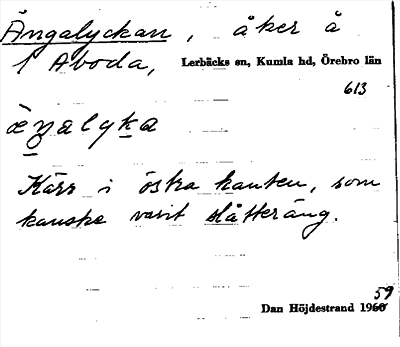 Ängalyckan, åker å
1 Åboda, Lerbäcks sn, Kumla hd, Örebro län
613
æ̀ŋalyka
Kärr i östra kanten, som
kanske varit slåtteräng.
59
Dan Höjdestrand 1960